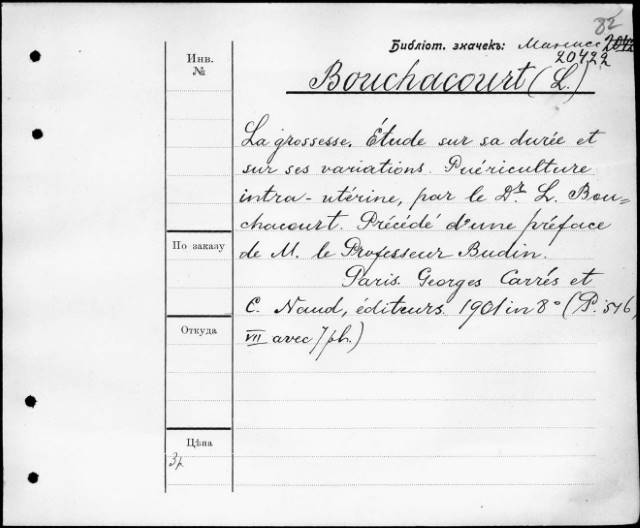 82
Библіот. значекъ:
20422
Инв.
№
Bouchacourt (L.)
La grossesse. Étude sur sa durée et
sur ses variations. Puériculture
intra-utérine, par le Dr. L. Bou=
chacourt. Précédé d'une préface
По заказу
de M. le Professeur Budin.
Paris. Georges Carrés et
C. Naud, éditeurs. 1901 in 8º (P. 516,
Откуда
VII avec 7 ph.)
Цѣна
3р